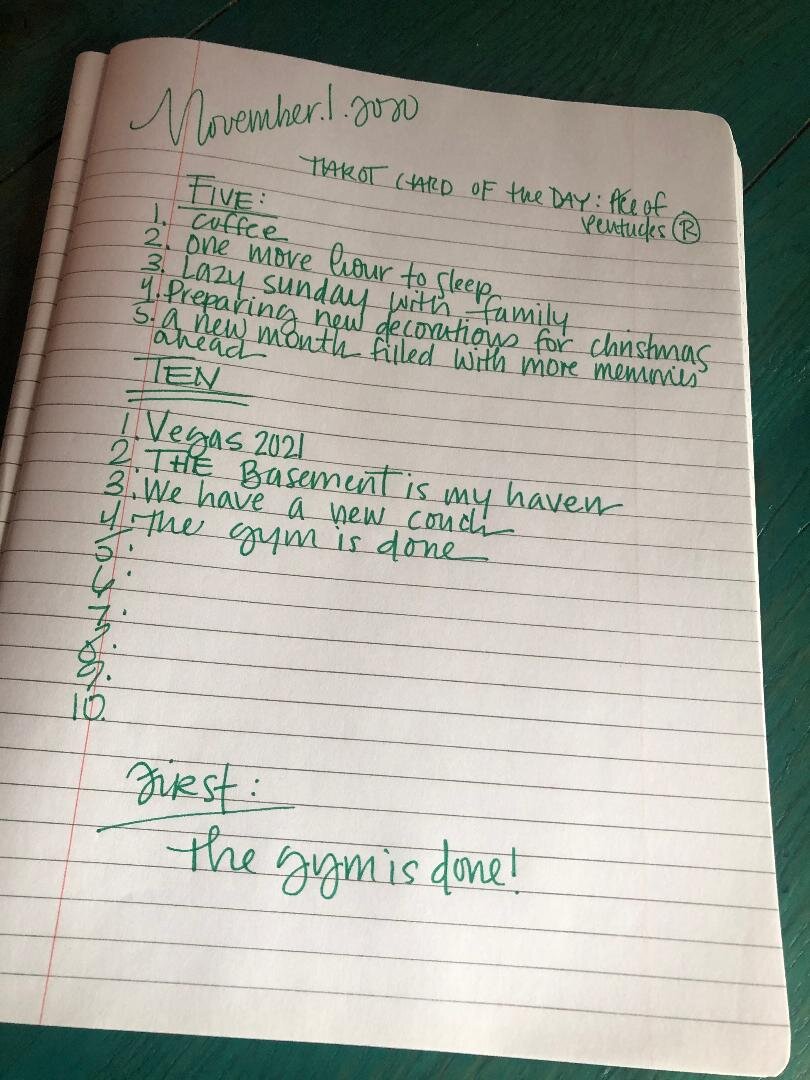 November.1.2020
TAROT CARD OF the DAY: Ace of
Pentucles Ⓡ
FIVE:
1. coffee
2. one more hour to sleep
3. Lazy sunday with family
4. Preparing new decorations for christmas
5. a new month filled with more memories
ahead
TEN
1. Vegas 2021
2. THE Basement is my haven
3. We have a new couch
4. The gym is done
5.
6.
7.
8.
9.
10.
FIRST:
the gym is done!